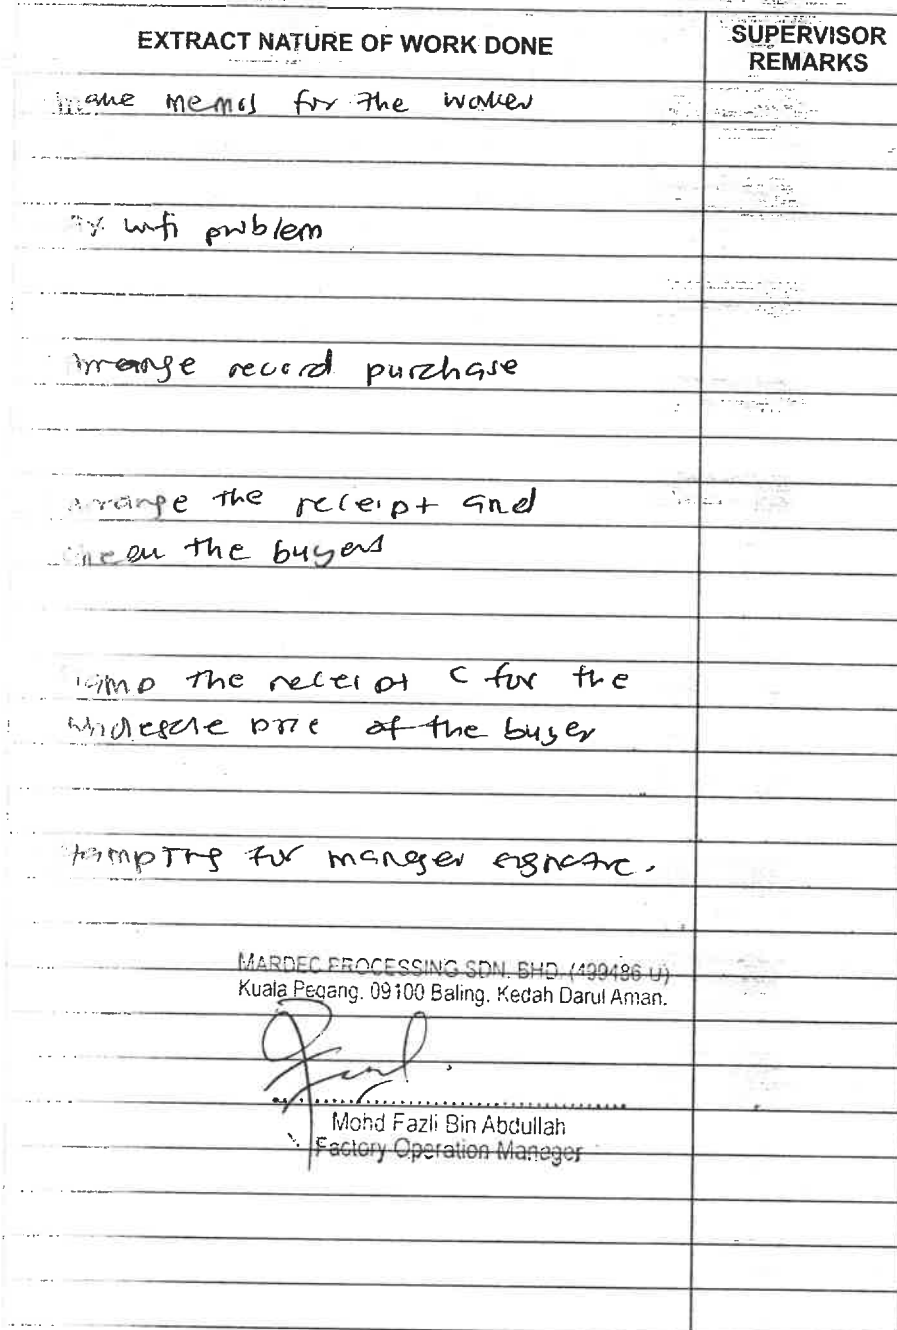 EXTRACT NATURE OF WORK DONE
SUPERVISOR
REMARKS
memos for the worker
wifi problem
record purchase
arrange the receipt and
the buyers
the receipt C for the
of the buyer
for manager
MARDEC PROCESSING SDN. BHD. (499486-U)
Kuala Pegang, 09100 Baling, Kedah Darul Aman.
Mohd Fazli Bin Abdullah
Factory Operation Manager